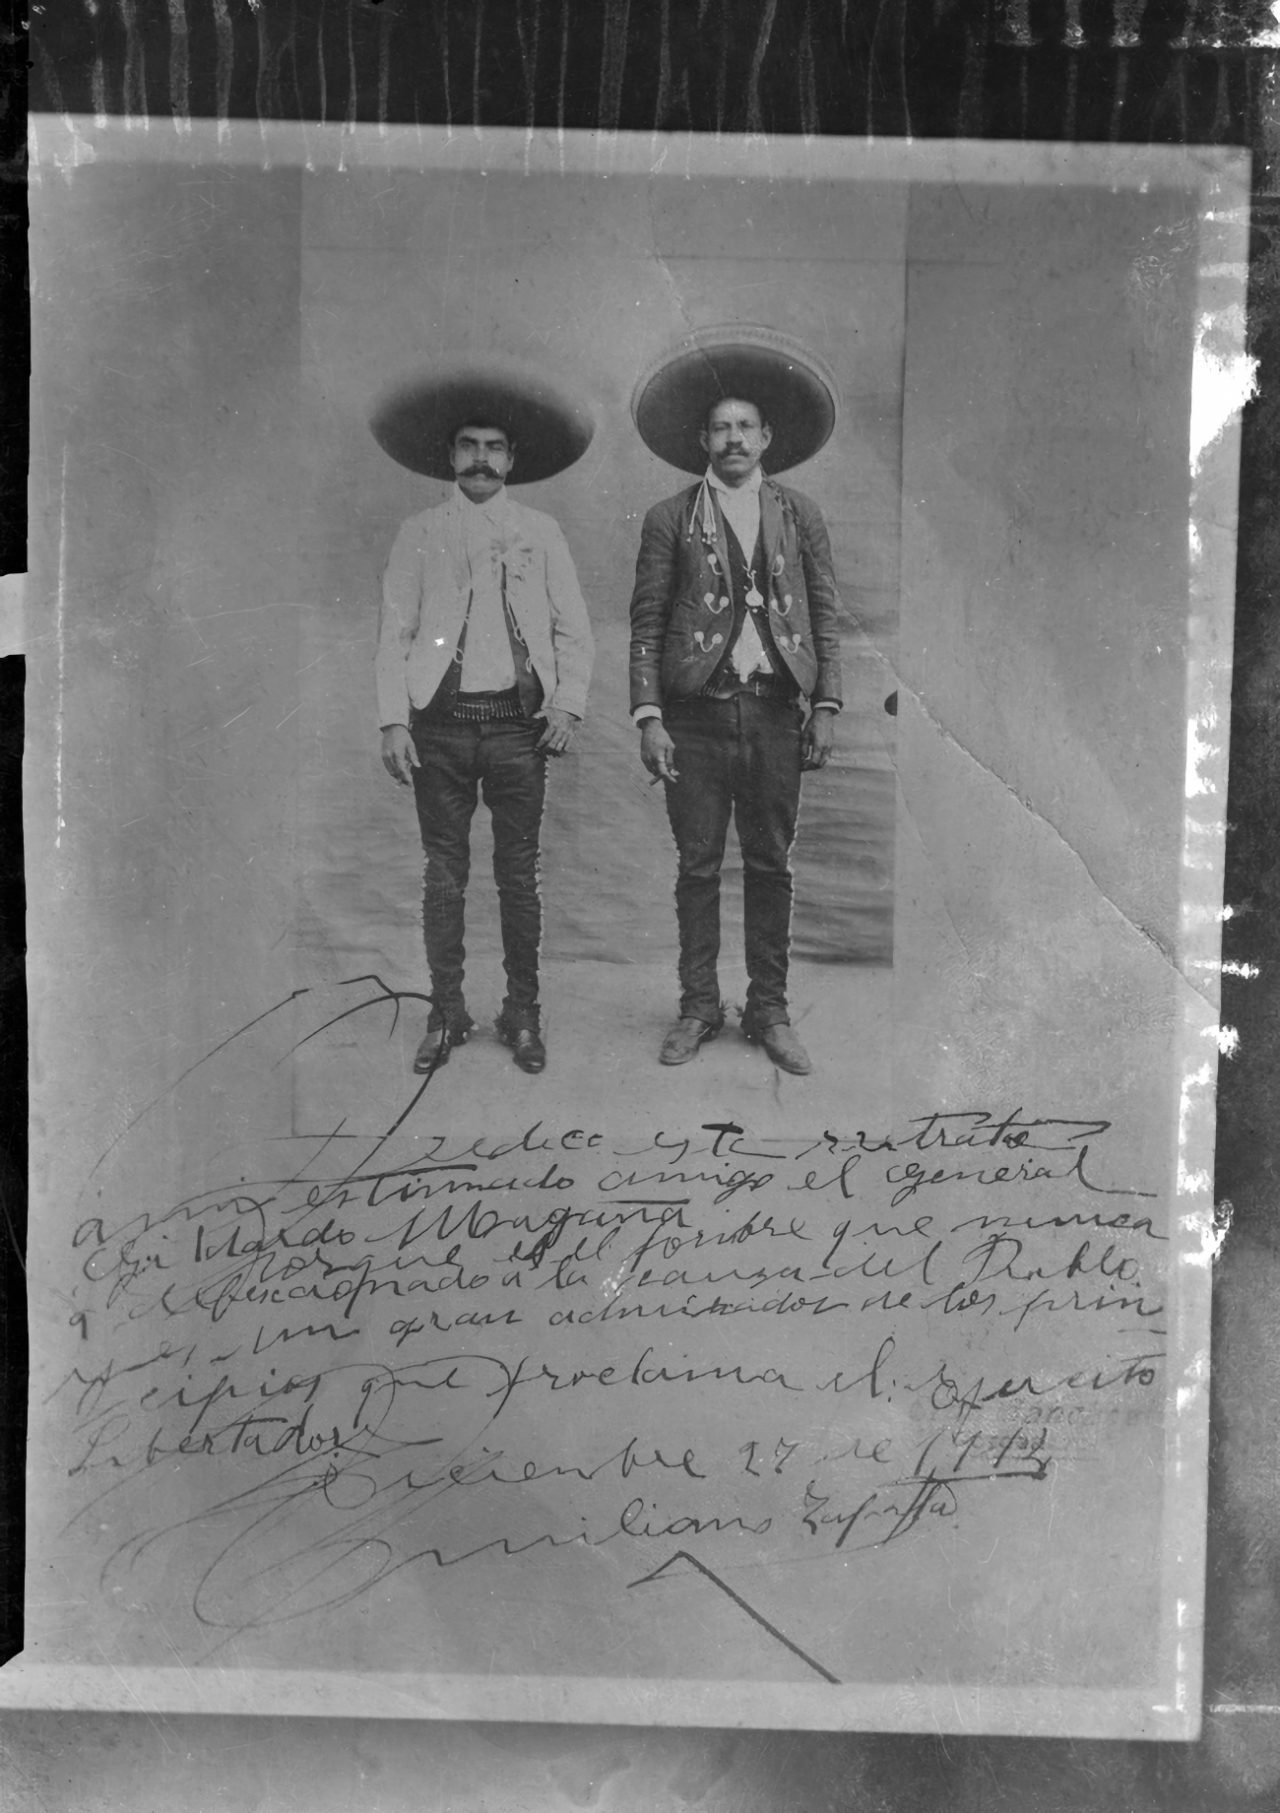 Dedico este retrato
á mi estimado amigo el General
Gildardo Magaña
porque es el hombre que nunca
á defeccionado á la causa del Pueblo
y es un gran admirador de los prin
cipios que proclama el Ejercito
Libertador.
Diciembre 27 de
Emiliano Zapata